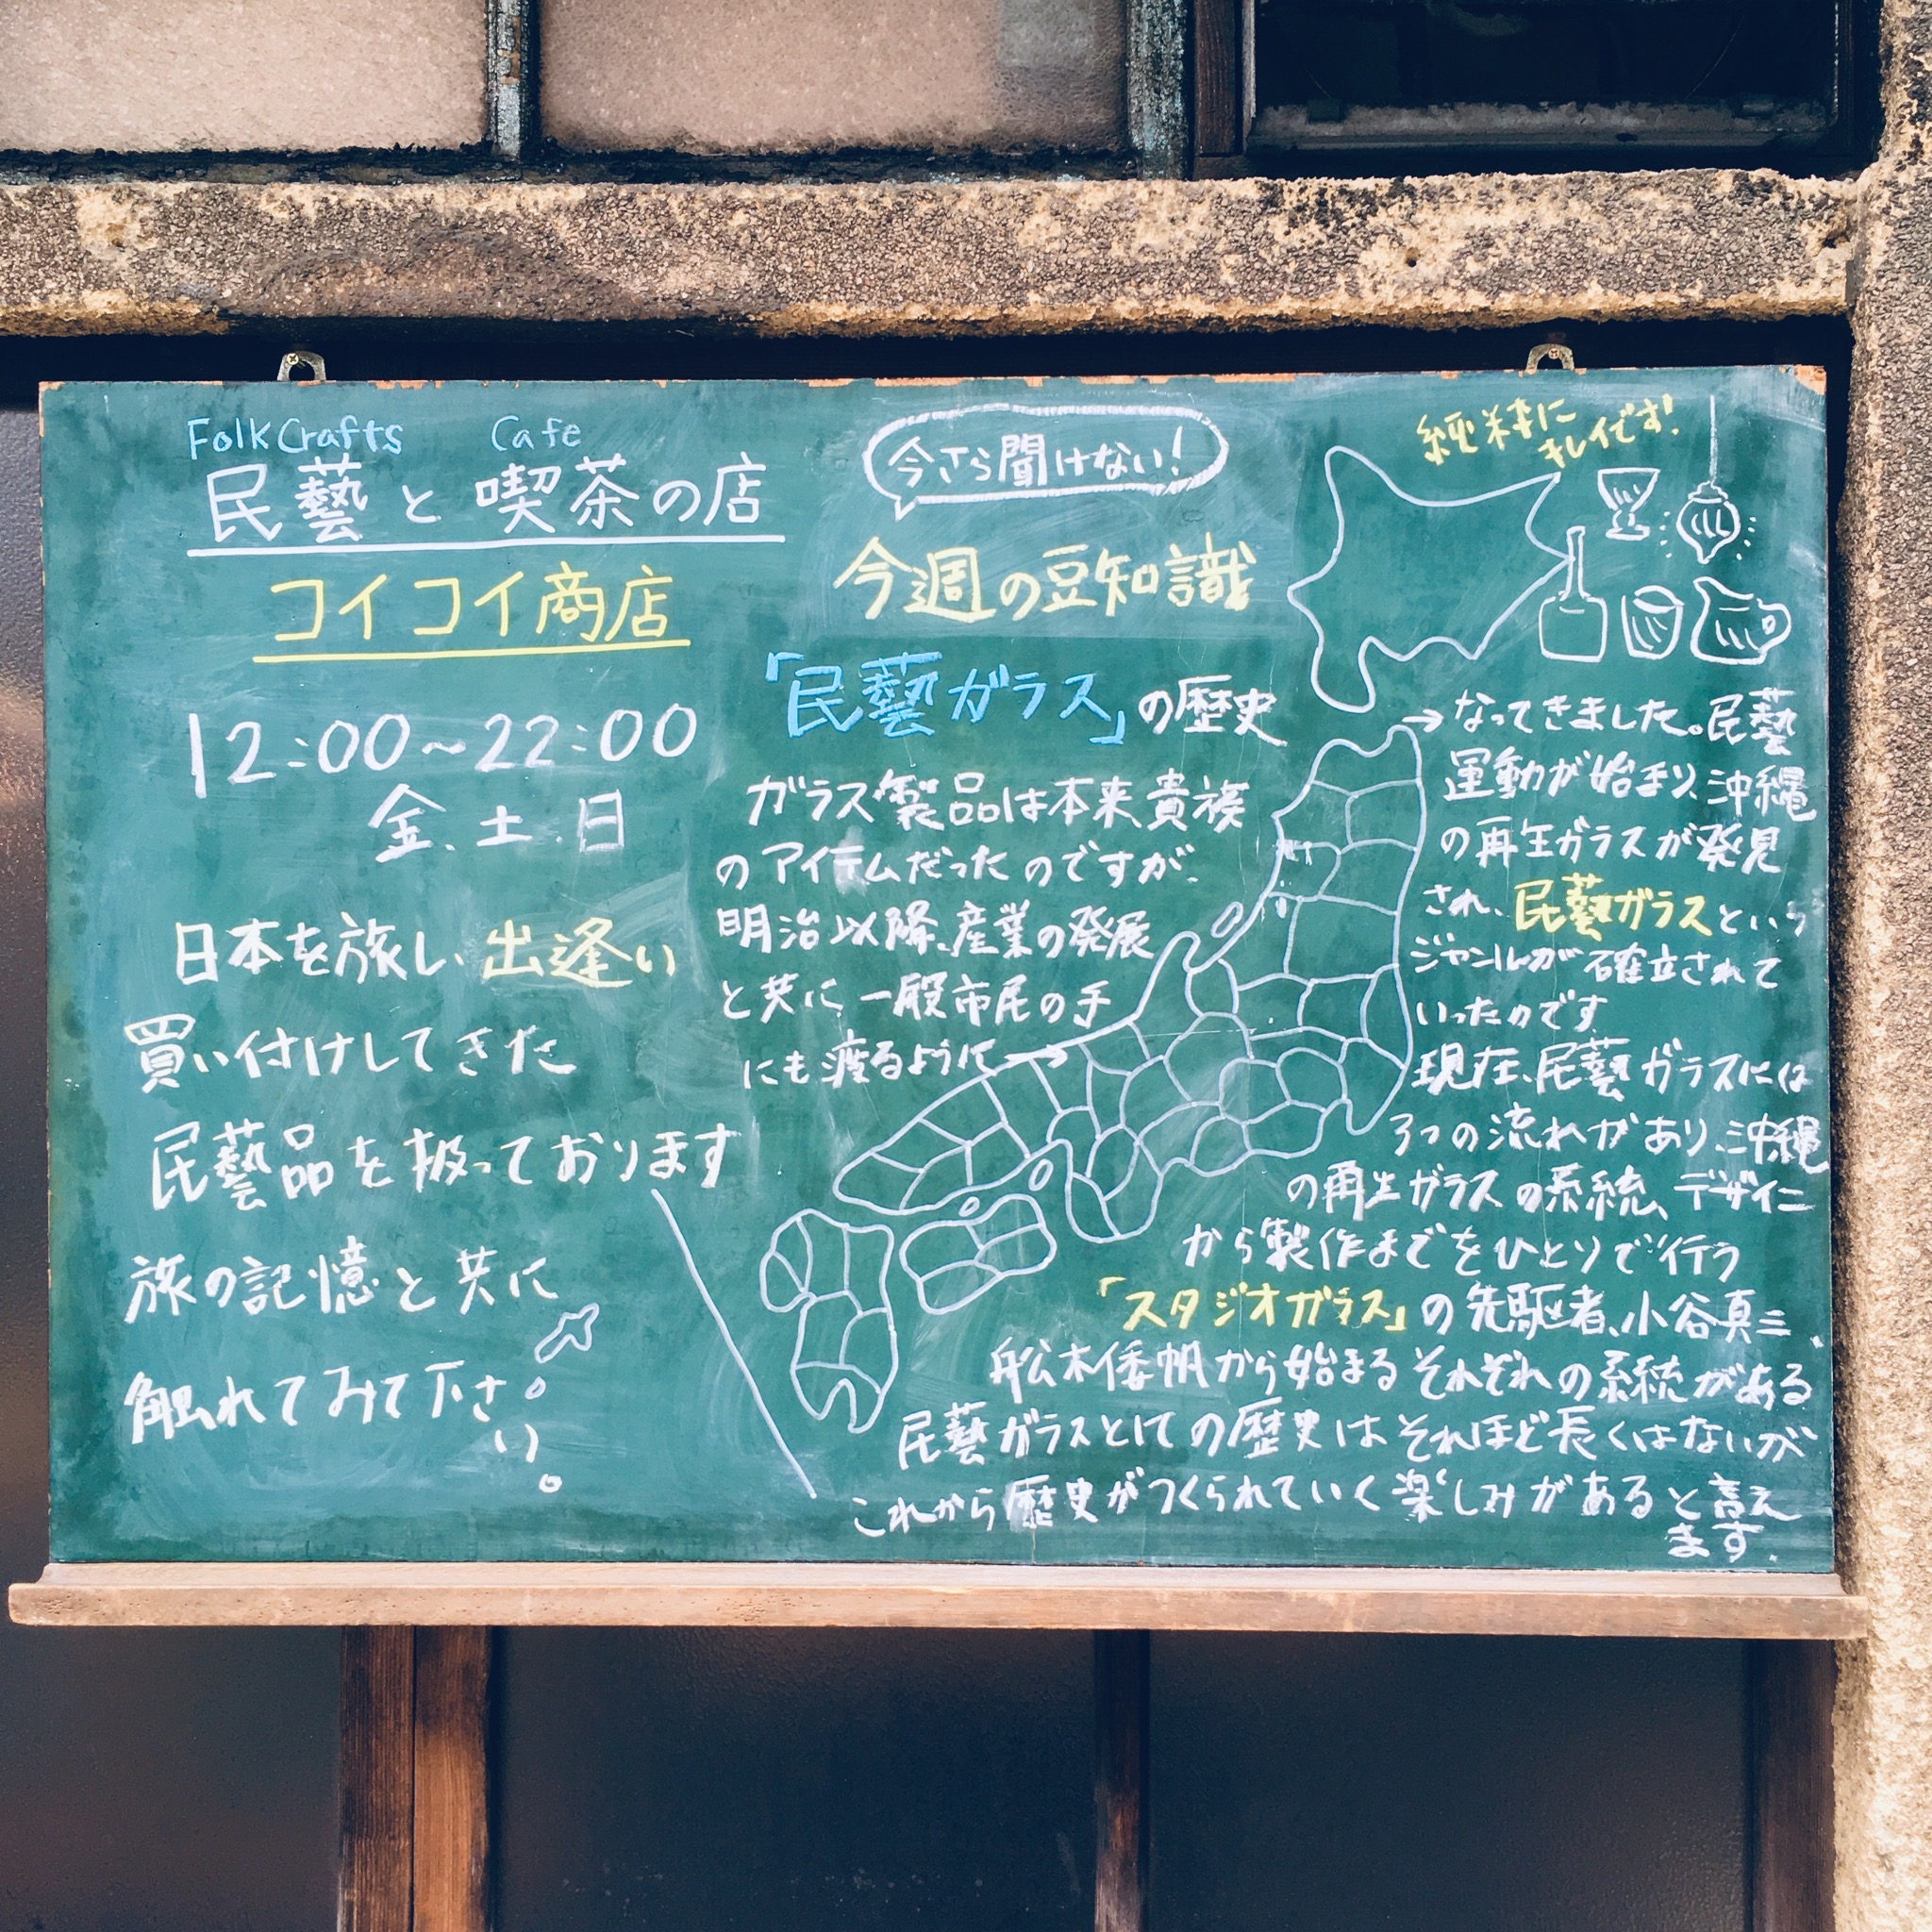 Folk Crafts Cafe
民藝と喫茶の店
コイコイ商店
12:00~22:00
金.土.日
日本を旅し、出逢い
買い付けしてきた
民藝品を扱っております
旅の記憶と共に
触れてみて下さい。
今さら聞けない!
今週の豆知識
「民藝ガラス」の歴史
ガラス製品は本来貴族
のアイテムだったのですが、
明治以降、産業の発展
と共に一般市民の手
にも渡るように→
純粋に
キレイです!
→なってきました。民藝
運動が始まり、沖縄
の再生ガラスが発見
され、民藝ガラスという
ジャンルが確立されて
いったのです
現在、民藝ガラスには
3つの流れがあり、沖縄
の再生ガラスの系統、デザイン
から製作までをひとりで行う
「スタジオガラス」の先駆者、小谷真三、
舩木倭帆から始まるそれぞれの系統がある
民藝ガラスとしての歴史はそれほど長くはないが
これから歴史がつくられていく楽しみがあると言え
ます.